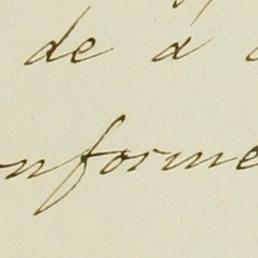 de á
onforme